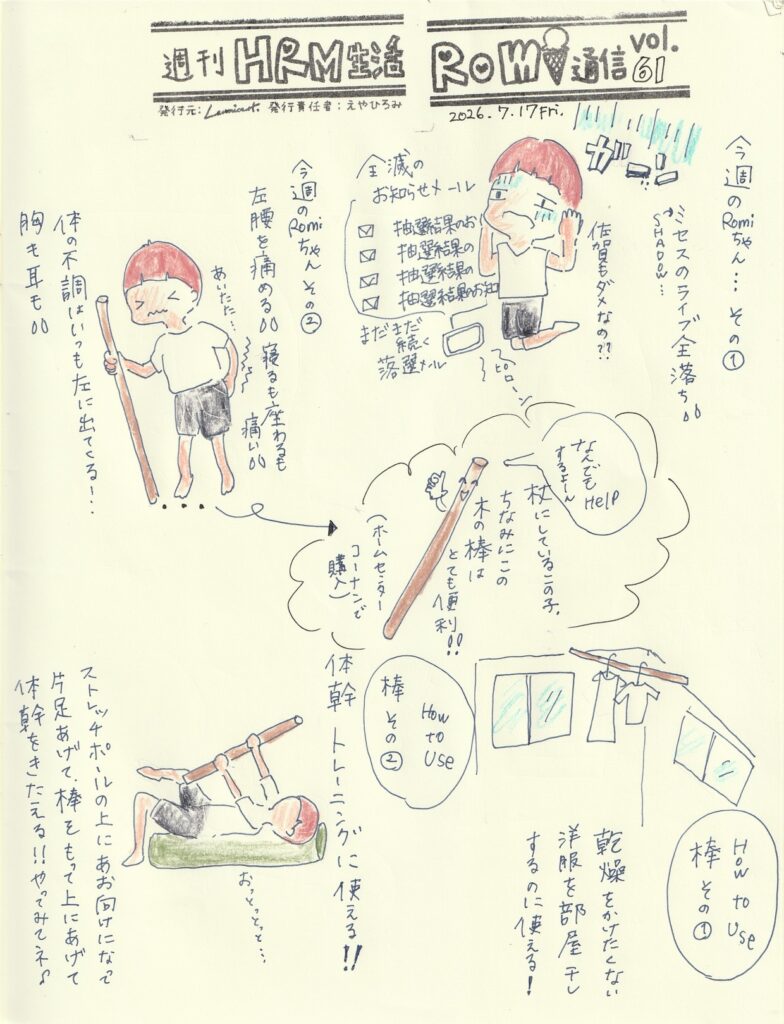 週刊 HRM生活 Romi通信 vol.61
発行元: 発行責任者:えやひろみ
2026.7.17 Fri.
今週のRomiちゃん…その①
ガーン
ミセスのライブ全落ち
SHADOW…
佐賀もダメなの??
全滅の
お知らせメール
抽選結果のお
抽選結果の
抽選結果の
抽選結果のお知
まだまだ
続く
落選メール
ピローン
今週のRomiちゃん その②
左腰を痛める 寝るも座わるも
痛い
あいたた…
体の不調はいつも左に出てくる!…
胸も耳も
なんでも
Help
するよーん
杖にしているこの子、
ちなみにこの
木の棒は
とても便利!!
(ホームセンター
コーナンで
購入)
How to Use
棒 その①
乾燥をかけたくない
洋服を部屋干し
するのに使える!
How to Use
棒 その②
体幹トレーニングに使える!!
おっとっとっと…
ストレッチポールの上にあお向けになって
片足あげて、棒をもって上にあげて
体幹をきたえる!!やってみてネ♪